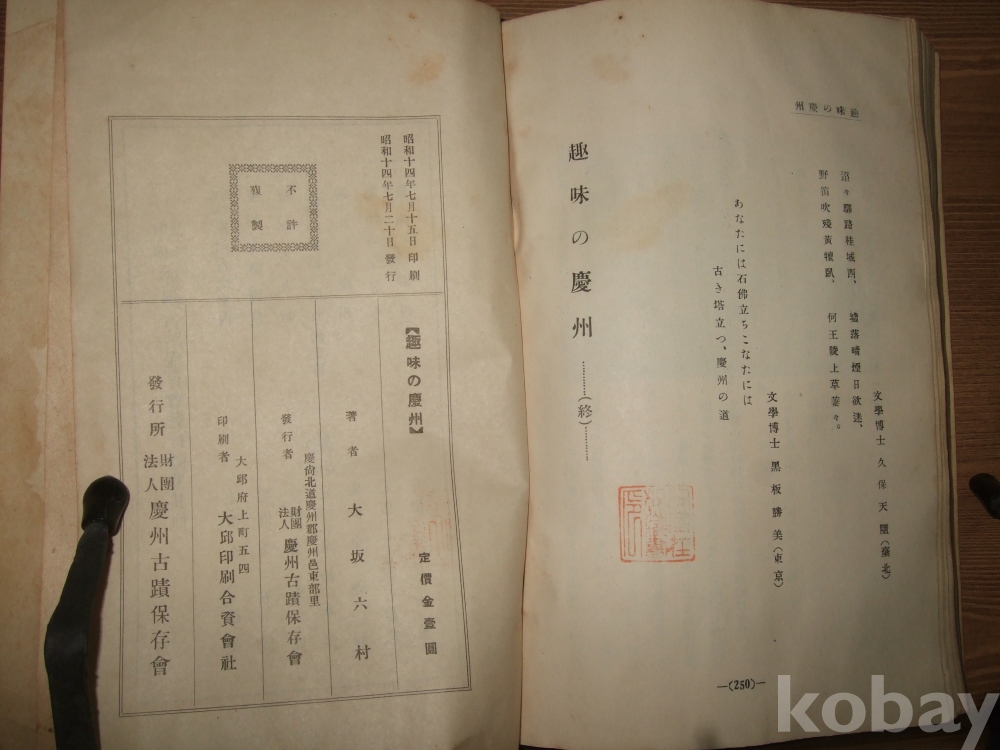 趣味の慶州
文學博士 久保天
野笛吹殘黃犢臥、何王陵上草
文學博士 黑板勝美（東京）
あなたには石佛立ちこなたには
古き塔立つ、慶州の道
趣味の慶州…………（終）…………
—(250)—
昭和十四年七月十五日印刷
昭和十四年七月二十日發行
不許
複製
【趣味の慶州】
定價金壹圓
著者 大坂六村
慶尙北道慶州郡慶州邑東部里
發行者 財團法人 慶州古蹟保存會
大邱府上町五四
印刷者 大邱印刷合資會社
發行所 財團法人 慶州古蹟保存會
kobay